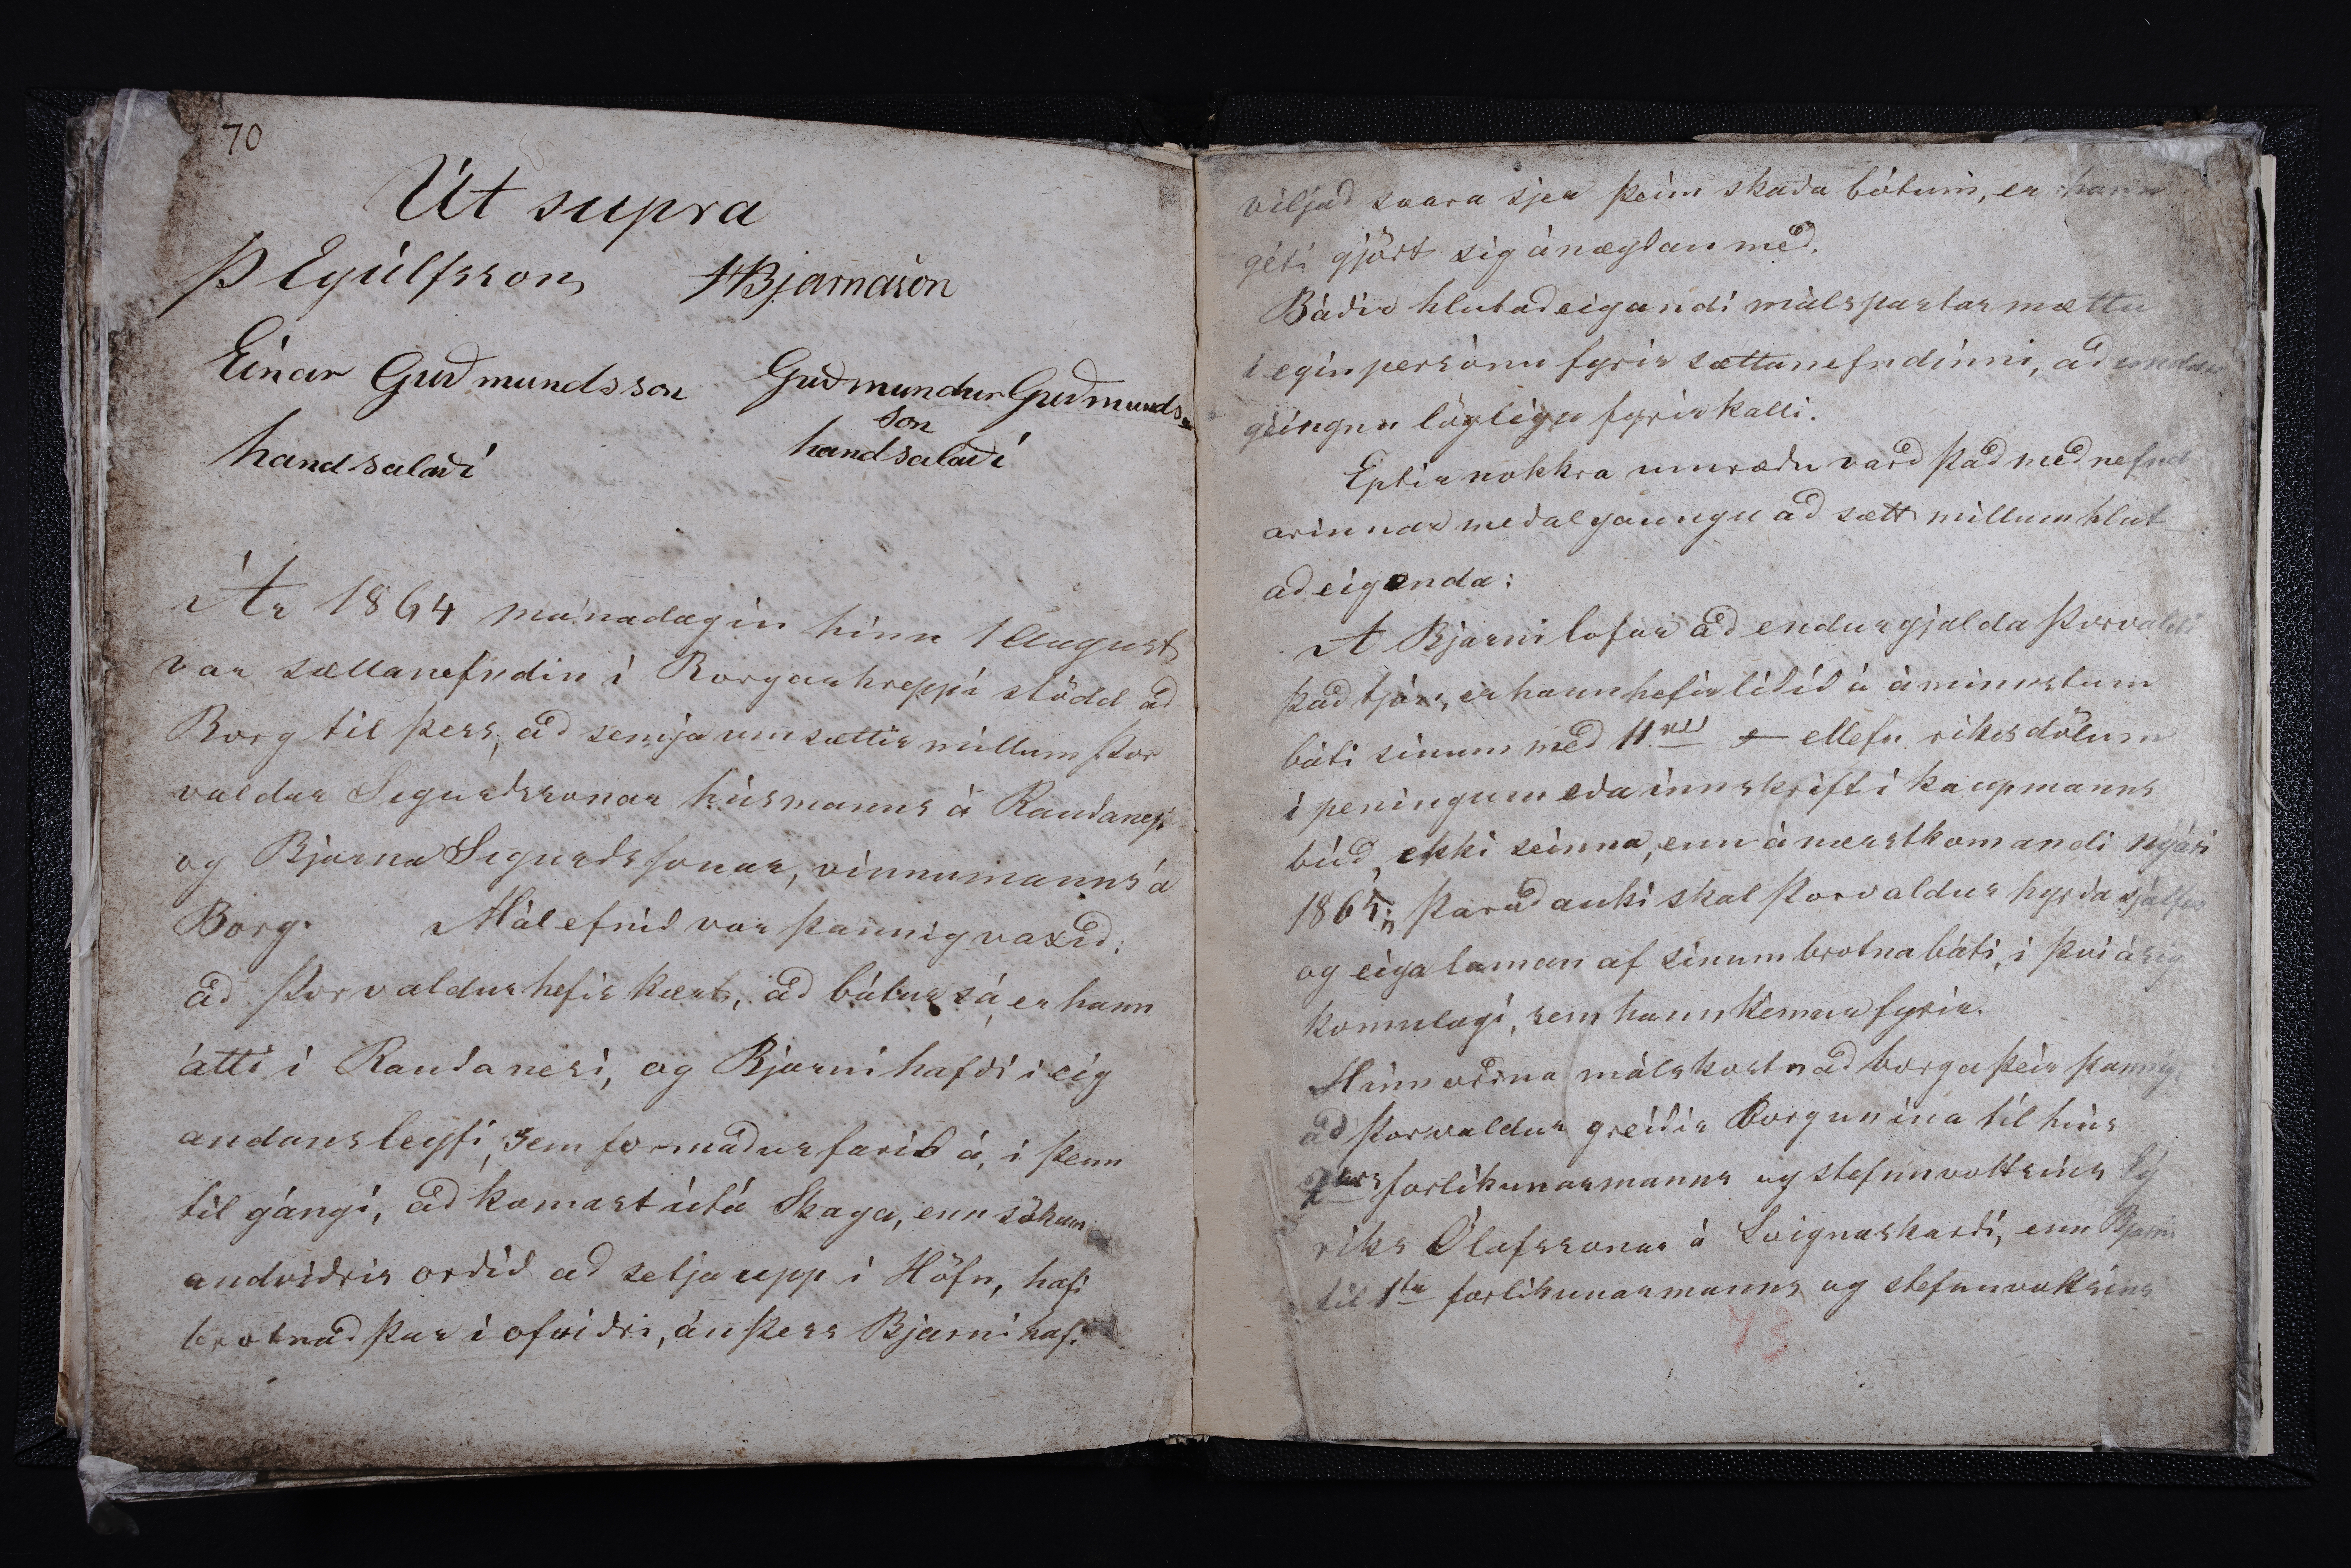 70
Út supra
Þ Eyúlfsson HBjarnason
Einar Guðmundsson Guðmundur Guðmunds-
son
handsalaði handsalaði
Ár 1864 mánadagin hinn 1 August
var sættanefndin í Borgarhreppi stödd að
Borg til þess, að semja um sættir millum Þor
valdar Sigurðssonar húsmanns á Rauðanesi
og Bjarna Sigurðssonar, vinnumanns á
Borg. Málefnið var þannig vaxið;
að Þorvaldur hefir kært, að bátur sá, er hann
átti í Rauðanesi, og Bjarni hafði í eig
andans leyfi, sem formaður farið á, í þenn
til gángi, að komast útá Skaga, enn sökum
andviðris orðið að setja upp í Höfn, hafi
brotnað þar í ofviðri, án þess Bjarni hafi
viljað svara sjer þeim skaða bótum, er hann
géti gjört sig ánægðan með.
Báðir hlutaðeigandi málspartar mættu
í egin persónu fyrir sættanefndinni, að undan
géingnu löglegu fyrirkalli.
Eptir nokkra umræðu varð það með nefnd
arinnar meðalgaungu að sætt millum hlut
aðeigenda:
At Bjarni lofar að endurgjalda Þorvaldi
það tjón, er hann hefir liðið á áminnstum
báti sínum með 11 rd ellefu ríkisdölum
í peningum eða innskrift í kaupmanns
búð, ekki seinna, enn á næstkomandi nýári
1865; Þarað auki skal Þorvaldur hyrða sjálfur
og eiga laman af sínum brotna báti, í því ásig
komulagi, sem hann kémur fyrir.
Hinn orðna málskostnað borga þeir þannig,
að Þorvaldur greiðir borgunina til hins
2ars forlíkunarmanns og stefnuvottsins Ey
ríks Ólafssonar á Svignaskarði, enn Bjarni
til 1ta forlíkunarmanns og stefnuvottsins
73